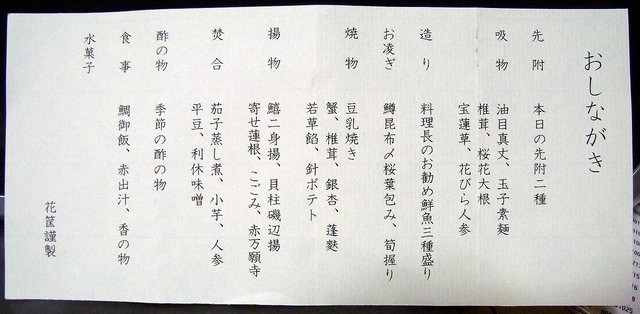 おしながき
先附 本日の先附二種
吸物 油目真丈、玉子素麺
椎茸、桜花大根
宝蓮草、花びら人参
造り 料理長のお勧め鮮魚三種盛り
お凌ぎ 鱒昆布〆桜葉包み、筍握り
焼物 豆乳焼き
蟹、椎茸、銀杏、蓬麩
若草餡、針ポテト
揚物 鱚二身揚、貝柱磯辺揚
寄せ蓮根、こごみ、赤万願寺
焚合 茄子蒸し煮、小芋、人参
平豆、利休味噌
酢の物 季節の酢の物
食事 鯛御飯、赤出汁、香の物
水菓子
花筐謹製